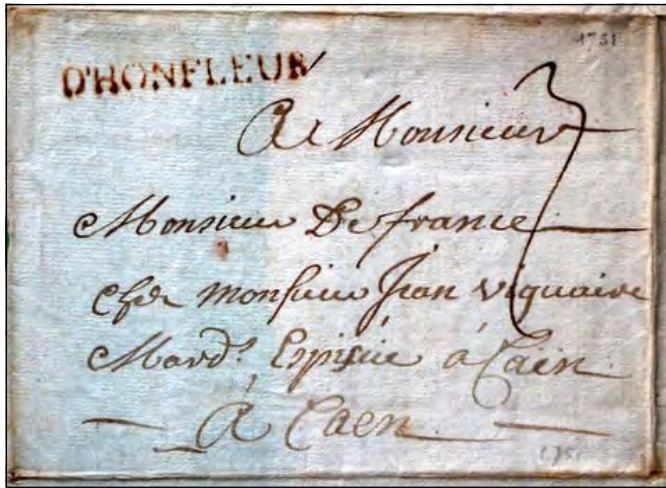 1751
D'HONFLEUR
A Monsieur
Monsieur De france
chez monsieur Jean viquaire
Mard. Epicie à Caen
À Caen
1751